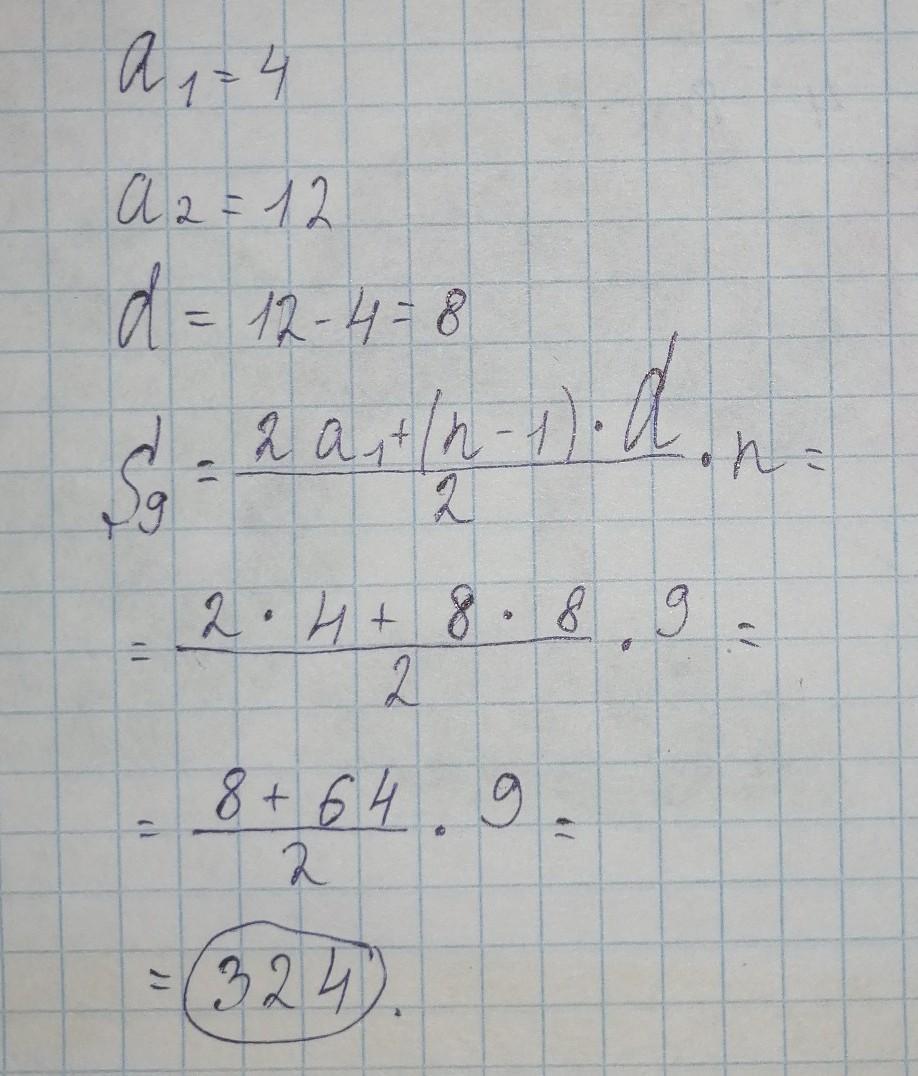 a₁ = 4
a₂ = 12
d = 12 - 4 = 8
S₉ = (2a₁ + (n - 1) · d) / 2 · n =
= (2 · 4 + 8 · 8) / 2 · 9 =
= (8 + 64) / 2 · 9 =
= 324.